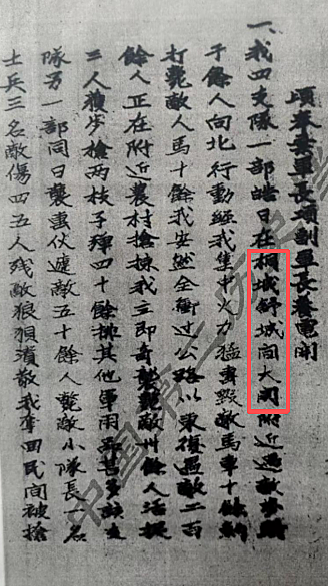 頃奉葉軍長項副軍長養電開
一、我四支隊一部皓日在桐城舒城間大関附近遇敵步騎
千餘人向北行動經我集中火力猛擊毀敵馬車十餘輛
打斃敵人馬十餘我安然全衝過公路以東復遇敵二百
餘人正在附近農村搶掠我立即奇襲斃敵卅餘人活捉
三人獲步槍兩枝子彈四十餘排其他軍用品甚多該支
隊另一部同日襲擊伏敵五十餘人斃敵小隊長一名
士兵三名敵傷四五人残敵狼狽潰散我奪回民間被搶
中国第二历史